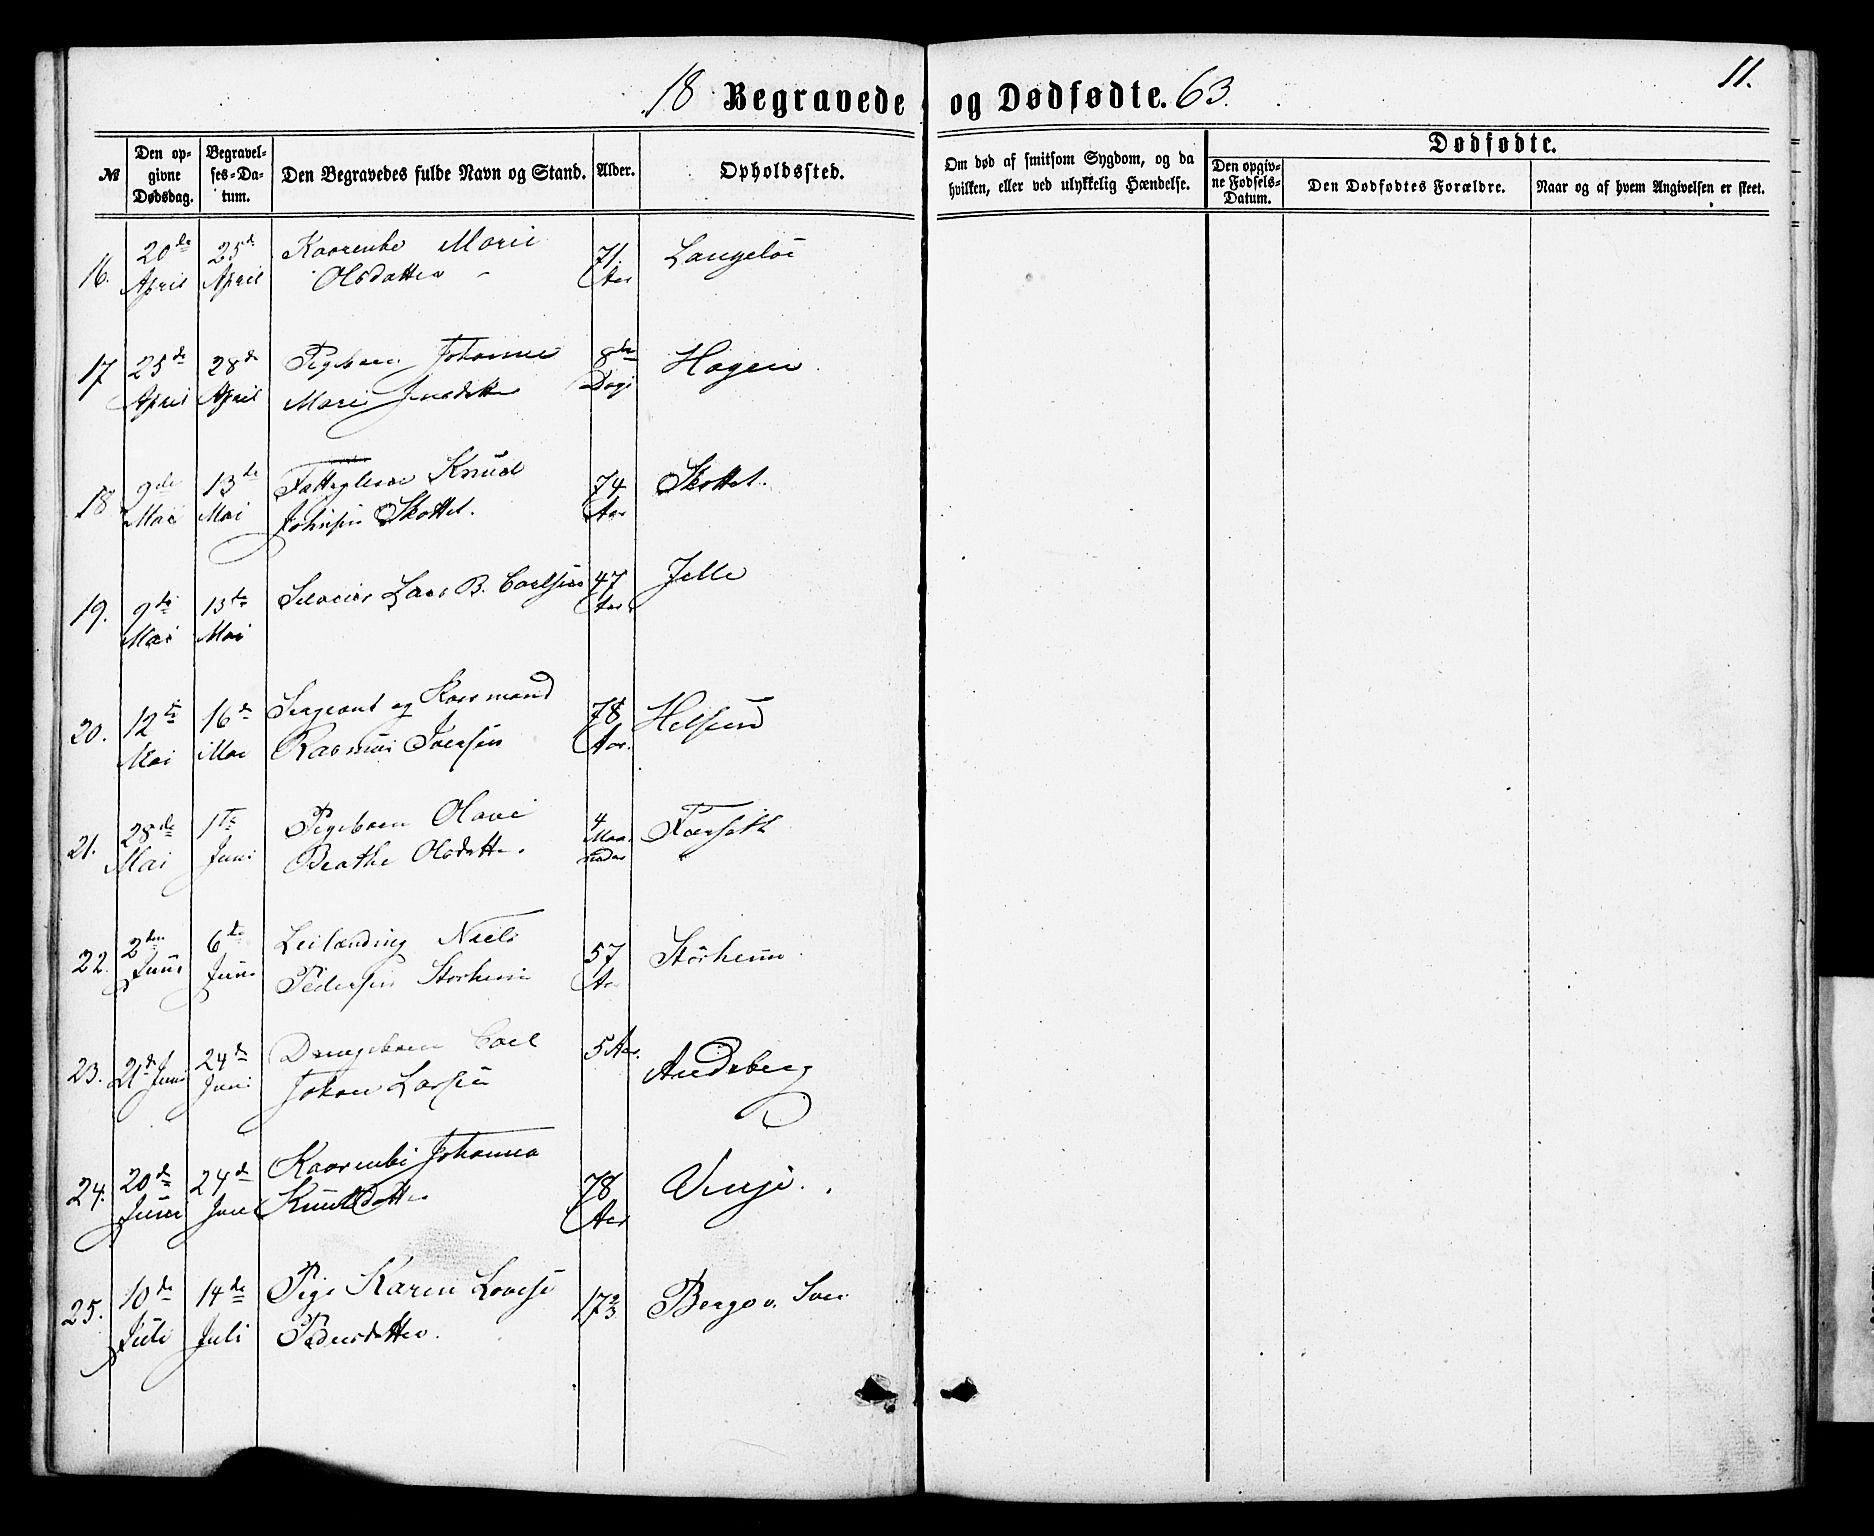 18 Begravede og Dødfødte. 63.
11.
№
Den opgivne Dødsdag.
Begravelses-Datum.
Den Begravedes fulde Navn og Stand.
Alder.
Opholdssted.
Om død af smitsom Sygdom, og da hvilken, eller ved ulykkelig Hændelse.
Dødfødte.
Den opgivne Fødsels-Datum.
Den Dødfødtes Forældre.
Naar og af hvem Angivelsen er skeet.
16. 20de April 25de April Kaarenke Marie 71 Aar
Olsdatter
17 25de April 28de April Pigebarn Johanne 8te Dage Hagen
Marie
18 9de Mai 13de Mai Knud 74 Aar Skottet.
Johnsen Skottet.
19. 9de Mai 13de Mai Lars B. Carlsen 47 Aar Jelle
20. 12te Mai 16de Mai Sergeant og Kaarmand 78 Aar.
Rasmus Iversen
21. 28de Mai 1ste Juni Pigebarn Olave 4 Maaneder
Beathe Olsdatter
22. 2den Juni 6te Juni Leilænding Niels 57 Aar Storheim
Pedersen Storheim
23. 21de Juni 24de Juni Drengebarn Carl 5 Aar. Audsberg
Johan Larsen
24. 20de Juni 24de Juni Johanna 78 Aar Vinje.
Knudsdatter
25. 10de Juli 14de Juli Pige Karen Lovise 17 2/3
Pedersdatter.